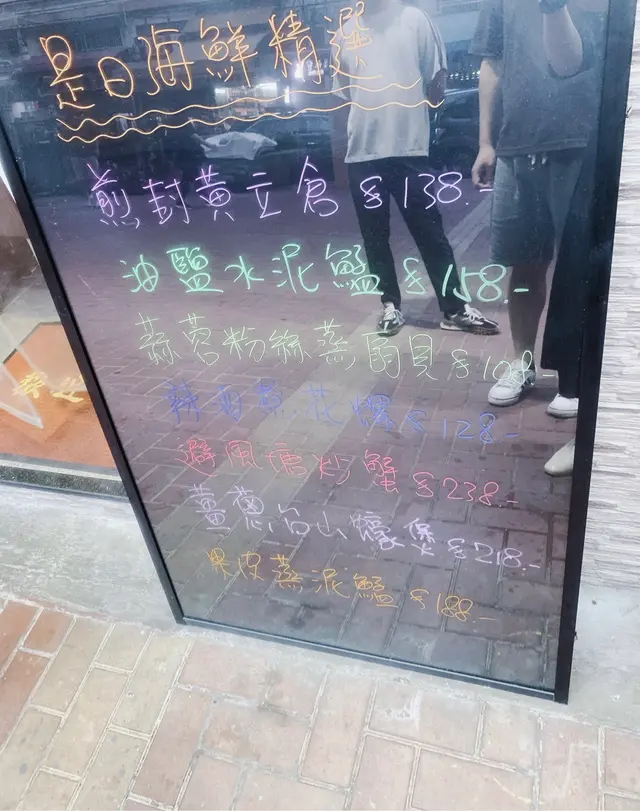 是日海鮮精選
煎封黃立倉 $138.-
油鹽水泥鯭 $158.-
蒜蓉粉絲蒸扇貝 $108
辣酒煮花螺 $128-
避風塘炒蟹 $238.-
薑蔥台山蠔煲 $218.-
果皮蒸泥鯭 $188.-